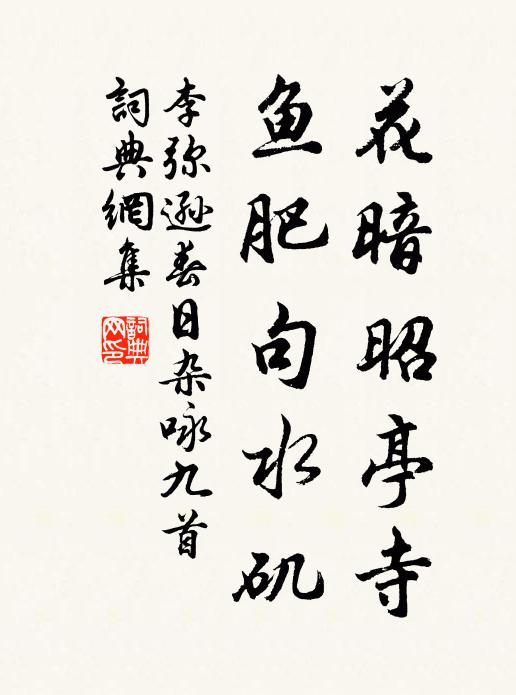 花暗昭亭寺
鱼肥句水矶
李弥逊春日杂咏九首
詞典網集
詞典
网印